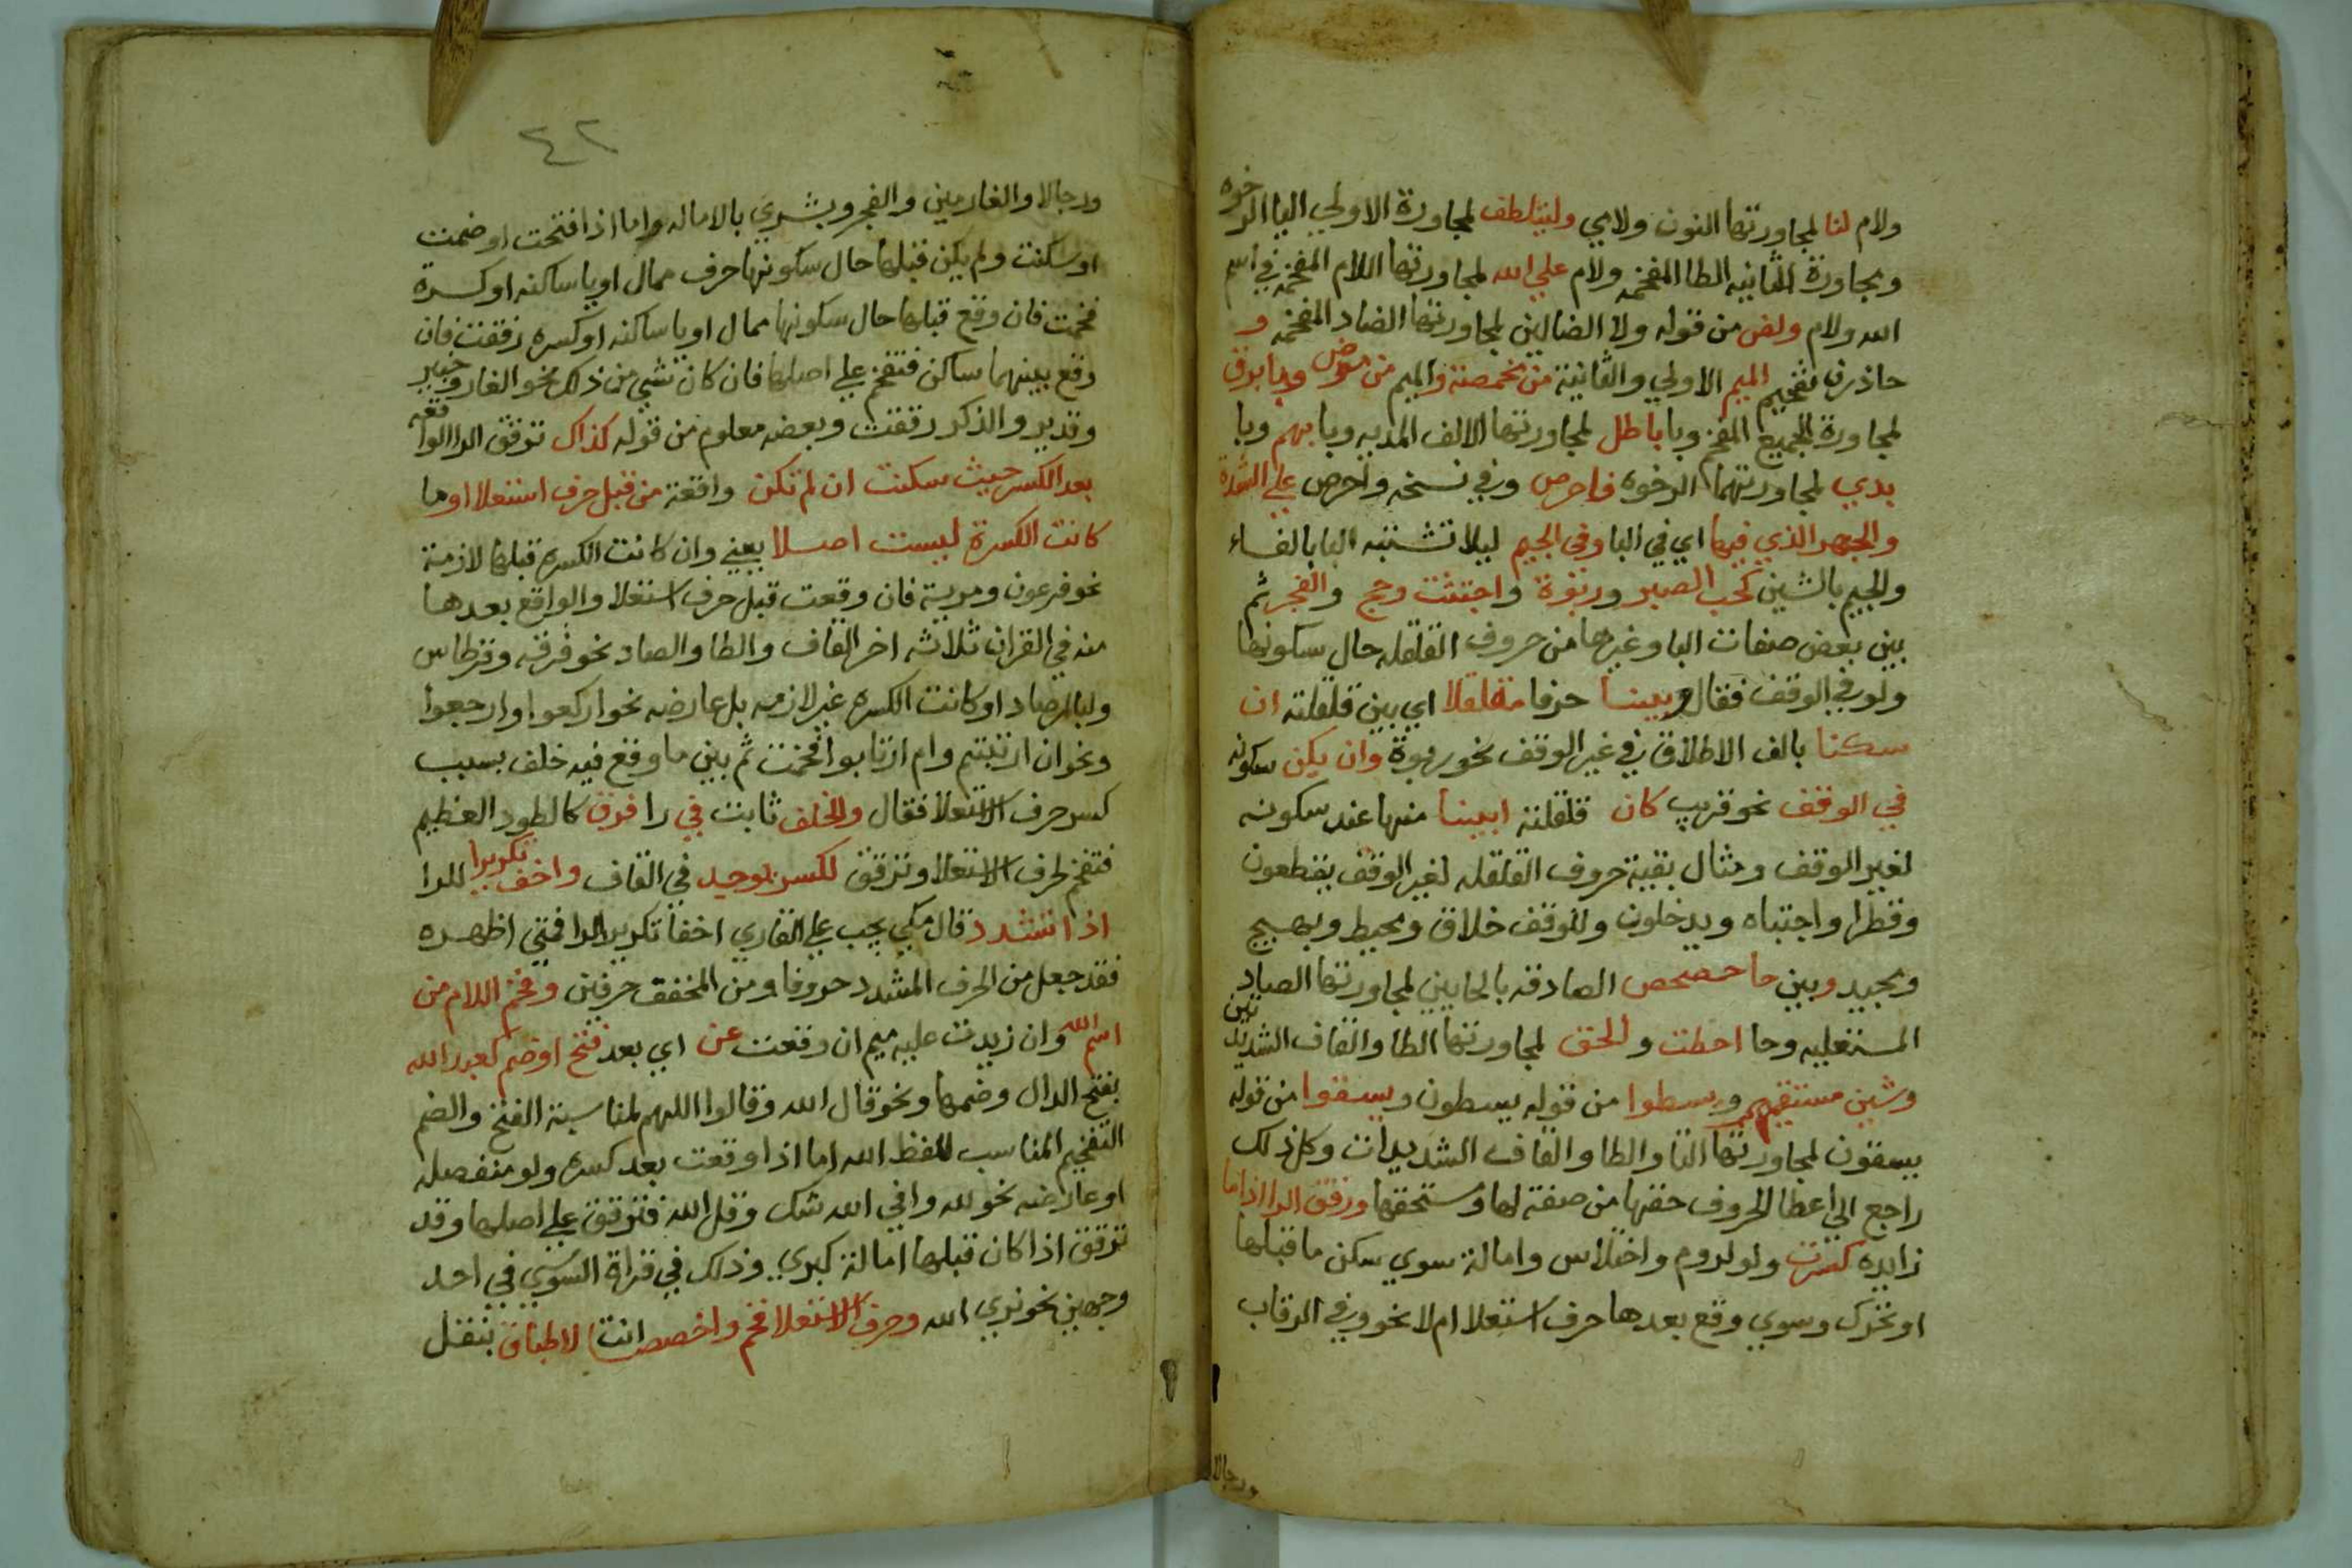 ولام لنا لمجاورتها النون ولامي وليتلطف لمجاورة الاولي اليا الرخوه
ومجاورة الثانيه الطا المفخمه ولام علي الله لمجاورتها اللام المفخمه في اسم
الله ولام ولض من قوله ولا الضالين لمجاورتها الضاد المفخمه و
حاذرن تفخيم الميم الاولي والثانية من مخمصة والميم من مرض وبا برق
لمجاورة الجميع المفخم وبا باطل لمجاورتها الالف المديه وبا بهم وبا
بذي لمجاورتهما الرخوه فاحرص وفي نسخه واحرص علي الشدة
والجهر الذي فيها اي في البا وفي الجيم ليلا تشتبه البا بالفاء
والجيم بالشين كحب الصبر وربوة واجتثت وحج والفجر ثم
بين بعض صفات البا وغيرها من حروف القلقله حال سكونها
ولو في الوقف فقال وبينا حرفا مقلقلا اي بين قلقلته ان
سكنا بالف الاطلاق في غير الوقف نحو ربوة وان يكن سكونه
في الوقف نحو قريب كان قلقلته ابينا منها عند سكونه
لغير الوقف ومثال بقية حروف القلقله لغير الوقف يقطعون
وقطرا واجتباه ويدخلون وللوقف خلاق ومحيط وبهيج
ومجيد وبين حا حصحص الصادقه بالحايين لمجاورتها الصاد
المستعليه وحا احطت والحق لمجاورتها الطا والقاف الشديدتين
وسين مستقيم ويسطوا من قوله يسطون ويسقوا من قوله
يسقون لمجاورتها التا والطا والقاف الشديدات وكل ذلك
راجع الي اعطا الحروف حقها من صفة لها ومستحقها ورقق الرا اذا ما
زايده كسرت ولو لروم واختلاس وامالة سوي سكن ما قبلها
او تحرك وسوي وقع بعدها حرف استعلا ام لا نحو وفي الرقاب
ورجالا
٤٢
ورجالا والغارمين والفجر وبشري بالاماله واما اذا فتحت او ضمت
او سكنت ولم يكن قبلها حال سكونها حرف ممال او يا ساكنه او كسرة
فخمت فان وقع قبلها حال سكونها ممال او يا ساكنه او كسره رققت فان
وقع بينهما ساكن فتفخم علي اصلها فان كان شي من ذلك نحو الغار وخبير
وقدير والذكر رققت وبعضه معلوم من قوله كذاك ترقق الرا الواقعه
بعد الكسر حيث سكنت ان لم تكن واقعة من قبل حرف استعلا او ما
كانت الكسرة ليست اصلا يعني وان كانت الكسره قبلها لازمة
نحو فرعون ومرية فان وقعت قبل حرف استعلا والواقع بعدها
منه في القران ثلاثه احرف القاف والطا والصاد نحو فرقه وقرطاس
ولبالمرصاد او كانت الكسره غير لازمه بل عارضه نحو اركعوا وارجعوا
ونحو ان ارتبتم وام ارتابوا فخمت ثم بين ما وقع فيه خلف بسبب
كسر حرف الاستعلا فقال والخلف ثابت في را فرق كالطود العظيم
فتفخم لحرف الاستعلا وترقق لكسر يوجد في القاف واخف تكريرا للرا
اذا تشدد قال مكي يجب علي القاري اخفا تكرير الرا فمتي اظهره
فقد جعل من الحرف المشدد حروفا ومن المخفف حرفين وفخم اللام من
اسم الله وان زيدت عليه ميم ان وقعت عن اي بعد فتح او ضم كعبد الله
بفتح الدال وضمها ونحو قال الله وقالوا اللهم لمناسبة الفتح والضم
التفخيم المناسب للفظ الله اما اذا وقعت بعد كسره ولو منفصله
او عارضه نحو لله وافي الله شك وقل الله فترقق علي اصلها وقد
ترقق اذا كان قبلها امالة كبري وذلك في قراة السوسي في احد
وجهين نحو نري الله وحرف الاستعلا فخم واخصصا انت لاطباق بنقل